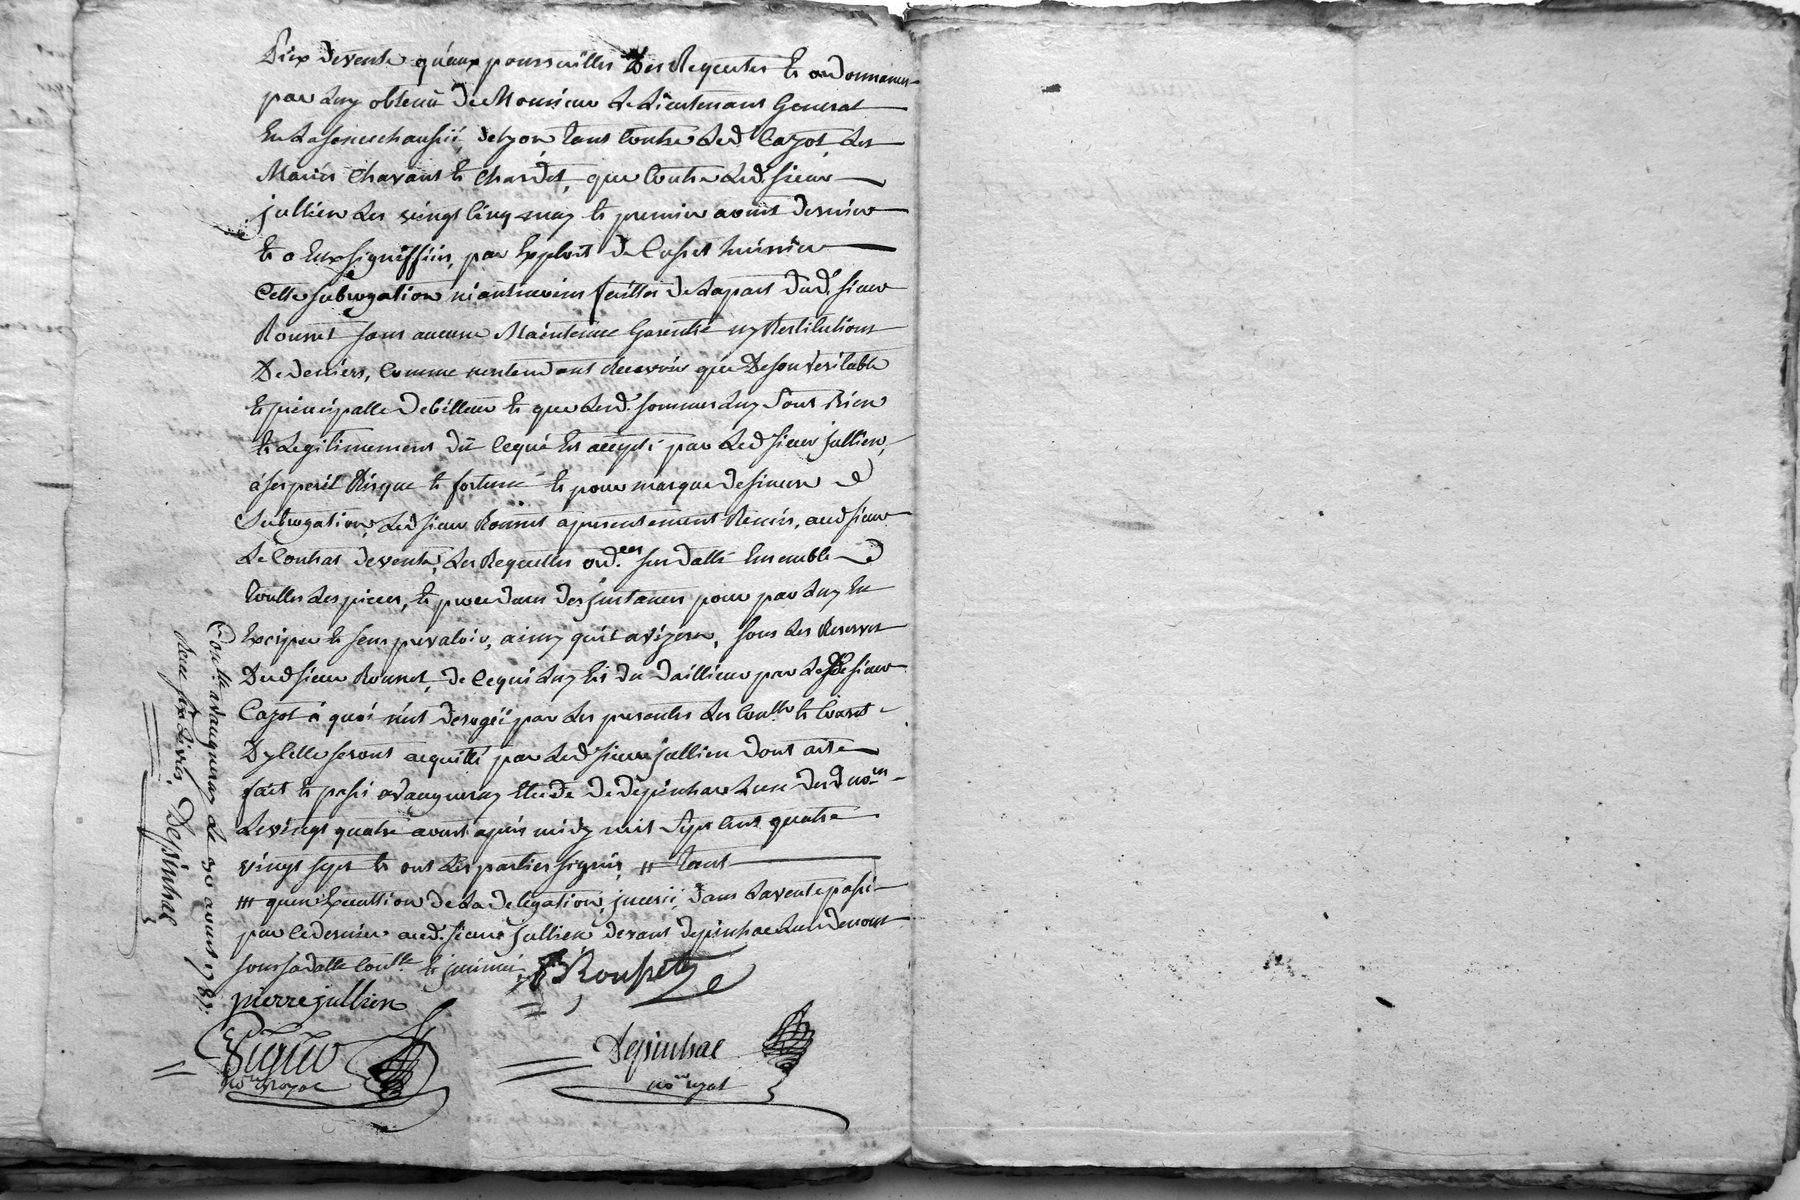 Prix devente qu'aux poursuittes Des Requettes Et ordonnances
par Luy obtenü De Monsieur Le Lieutenant General
En La senechaussée, de Lyon, tant Contre Led.t Cazot Les
Mariés Chavant Et Chardet, que Contre Led. sieur
jullien Les vingt Cinq may Et premier aoust dernier
Et a Eux signiffiés, par Exploit de huissier
Cette subrogation néantmoins faitte De La part Dud. sieur
Rousset sans aucune Maintenue Garentie ny Restitution
De deniers, Comme nentendant Recevoir que De son veritable
Et principalle debitteur Et que Lesd. sommes Luy sont Bien
Et Legitimement dû Ce qui Est accepté par Led sieur jullien,
a ses peril Risque Et fortune Et pour marque de sincere
Subrogation, Led sieur Rousset a presentement Remis, aud sieur
Le Contrat de vente, Les Requettes ord.ces sus datté Ensemble
touttes Les pieces, Et procedures des instances pour par Luy En
Exciper Et sen prevaloir, ainsy quil avizera, sous Les Reserves
Dud sieur Rousset, de Ce qui Luy Est du dailleur par Led sieur
Cazot a quoi n'est derogé par Les presentes Les Contlle Et
Dycelle seront acquitté par Led sieur jullien dont acte
fait Et passé a vaugneray Etude De depinhac Lun Desd no.res
Le vingt quatre aoust apres midy mil sept Cent quatre
vingt sept Et ont Les parties signés, # tant
# quen Execution De La delegation, inserée, dans La vente passé
par Ce dernier aud. sieur jullien devant depinhac Lun de nous
sous sa datte Contllé Et insinué, Rousset
pierre jullien
Depinhac
no.re Royal
no.re royal
Contllé a vaugneray Le 30 aoust 1787.
Recu six Livres, Depinhac